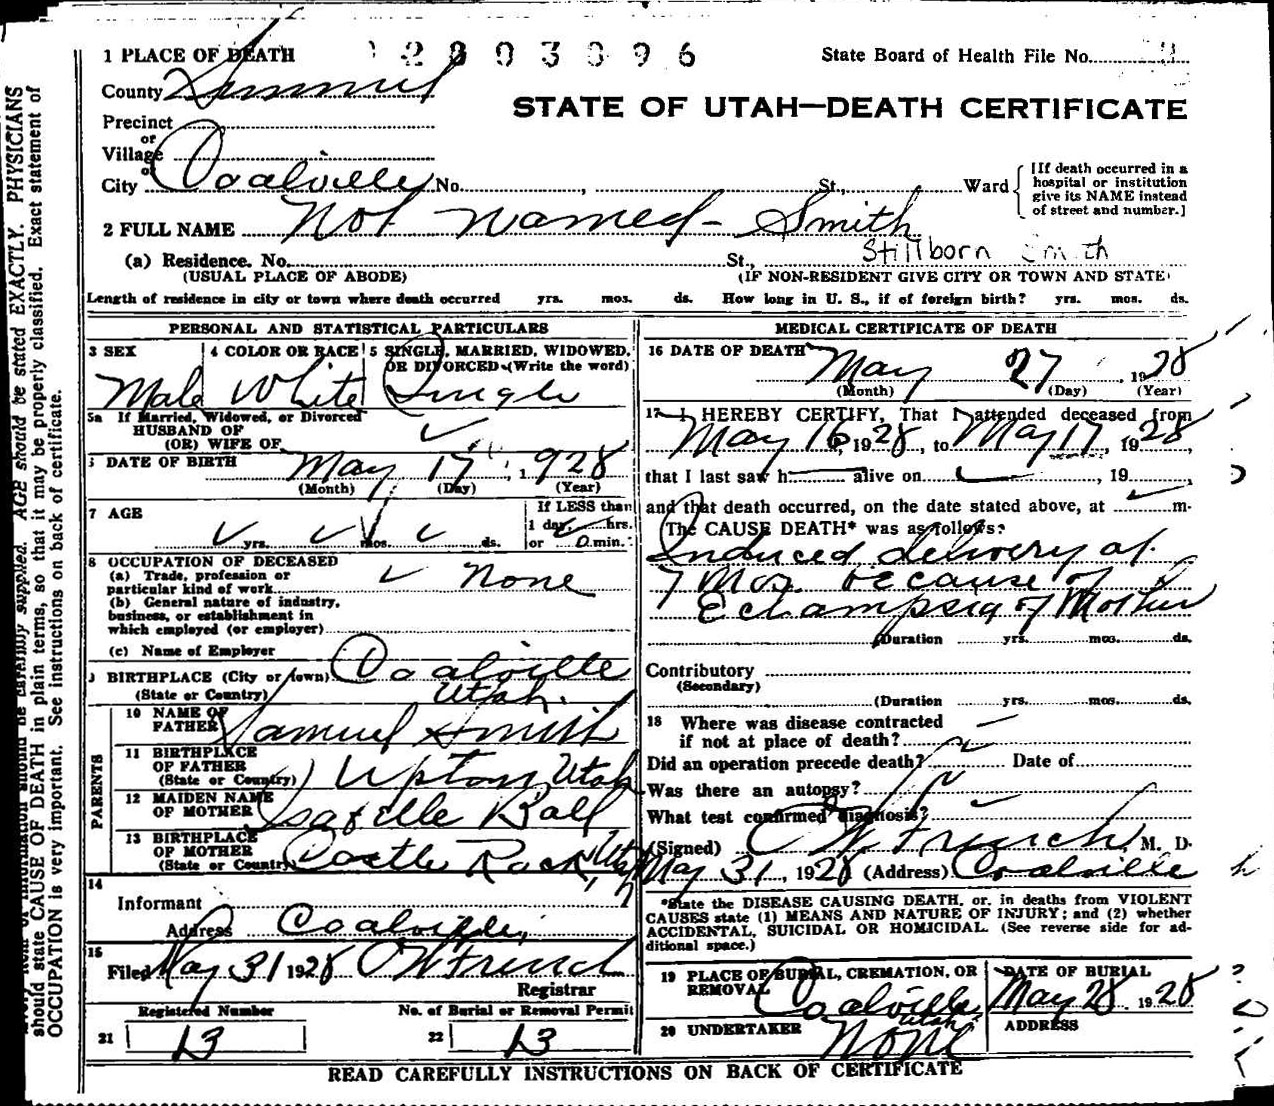 1 PLACE OF DEATH
2803096
State Board of Health File No.
County Summit
STATE OF UTAH—DEATH CERTIFICATE
Precinct
or
Village
or
City Coalville No. , St., Ward
[If death occurred in a hospital or institution give its NAME instead of street and number.]
2 FULL NAME Not Named - Smith
Stillborn Smith
(a) Residence. No. St.,
(USUAL PLACE OF ABODE) (IF NON-RESIDENT GIVE CITY OR TOWN AND STATE)
Length of residence in city or town where death occurred yrs. mos. ds. How long in U. S., if of foreign birth? yrs. mos. ds.
PERSONAL AND STATISTICAL PARTICULARS
3 SEX 4 COLOR OR RACE 5 SINGLE, MARRIED, WIDOWED,
OR DIVORCED (Write the word)
Male White Single
5a If Married, Widowed, or Divorced
HUSBAND OF
(OR) WIFE OF
DATE OF BIRTH May 17, 1928
(Month) (Day) (Year)
7 AGE
If LESS than
1 day, hrs.
yrs. mos. ds. or 0 min.
8 OCCUPATION OF DECEASED
(a) Trade, profession or
particular kind of work None
(b) General nature of industry,
business, or establishment in
which employed (or employer)
(c) Name of Employer
BIRTHPLACE (City or town) Coalville
(State or Country) Utah.
PARENTS
10 NAME OF
FATHER Samuel Smith
11 BIRTHPLACE
OF FATHER
(State or Country) Upton, Utah
12 MAIDEN NAME
OF MOTHER Isabelle Ball
13 BIRTHPLACE
OF MOTHER
(State or Country) Castle Rock, Utah
14
Informant
Address Coalville,
15
Filed May 31 1928 O W French
Registrar
Registered Number No. of Burial or Removal Permit
21 13 22 13
MEDICAL CERTIFICATE OF DEATH
16 DATE OF DEATH
May 27, 1928
(Month) (Day) (Year)
17 I HEREBY CERTIFY, That I attended deceased from
May 16, 1928, to May 17, 1928
that I last saw h alive on , 19 ,
and that death occurred, on the date stated above, at m.
The CAUSE DEATH* was as follows:
Induced delivery at
7 Mos. because of
Echampsia of Mother
(Duration yrs. mos. ds.
Contributory
(Secondary)
(Duration yrs. mos. ds.
18 Where was disease contracted
if not at place of death?
Did an operation precede death? Date of
Was there an autopsy?
What test confirmed diagnosis?
(Signed) O W French, M. D.
May 31, 1928 (Address) Coalville
*State the DISEASE CAUSING DEATH, or, in deaths from VIOLENT
CAUSES state (1) MEANS AND NATURE OF INJURY; and (2) whether
ACCIDENTAL, SUICIDAL OR HOMICIDAL. (See reverse side for ad-
ditional space.)
19 PLACE OF BURIAL, CREMATION, OR
REMOVAL Coalville Utah
DATE OF BURIAL
May 28 1928
20 UNDERTAKER None
ADDRESS
READ CAREFULLY INSTRUCTIONS ON BACK OF CERTIFICATE
should state CAUSE OF DEATH in plain terms, so that it may be properly classified. Exact statement of
OCCUPATION is very important. See instructions on back of certificate.